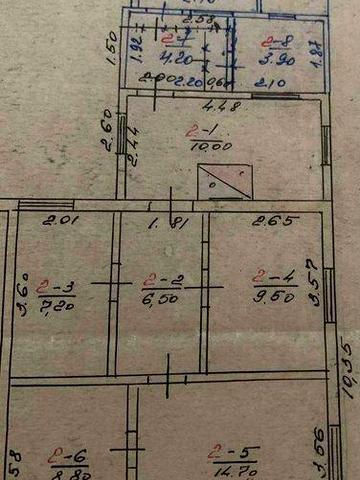 2.58
1.50
1.92
2-7
4.20
2-8
3.90
1.87
2.20
2.10
4.48
2.60
2.44
2-1
10.00
2.01
1.81
2.65
3.60
2-3
7,20
2-2
6,50
2-4
9.50
3.57
10,35
2-6
8.80
2-5
14.70
3.66
58